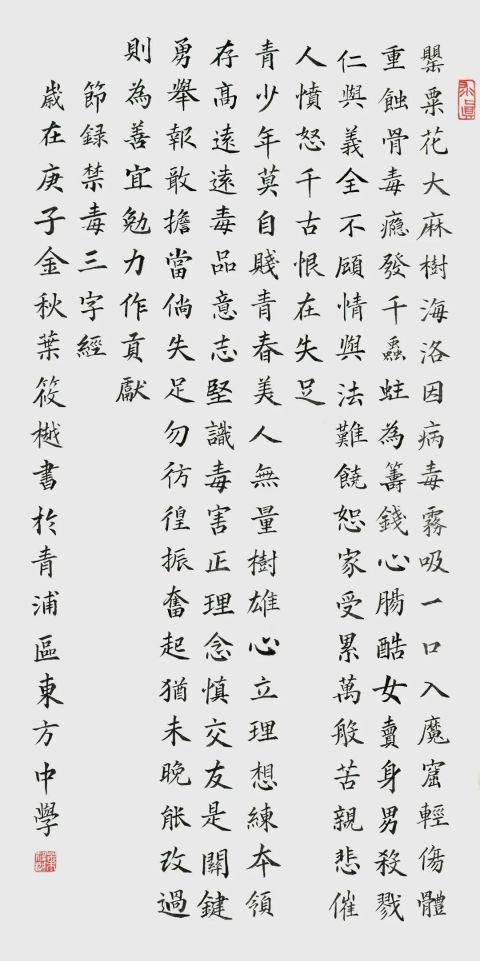 罌粟花大麻樹海洛因病毒霧吸一口入魔窟輕傷體
重蝕骨毒癮發千蟲蛀為籌錢心腸酷女賣身男殺戮
仁與義全不顾情與法難饒恕家受累萬般苦親悲催
人憤怒千古恨在失足
青少年莫自賤青春美人無量樹雄心立理想練本領
存高遠遠毒品意志堅識毒害正理念慎交友是關鍵
勇舉報敢擔當倘失足勿彷徨振奮起猶未晚能改過
則為善宜勉力作貢獻
節録禁毒三字經
歲在庚子金秋葉筱樾書於青浦區東方中學